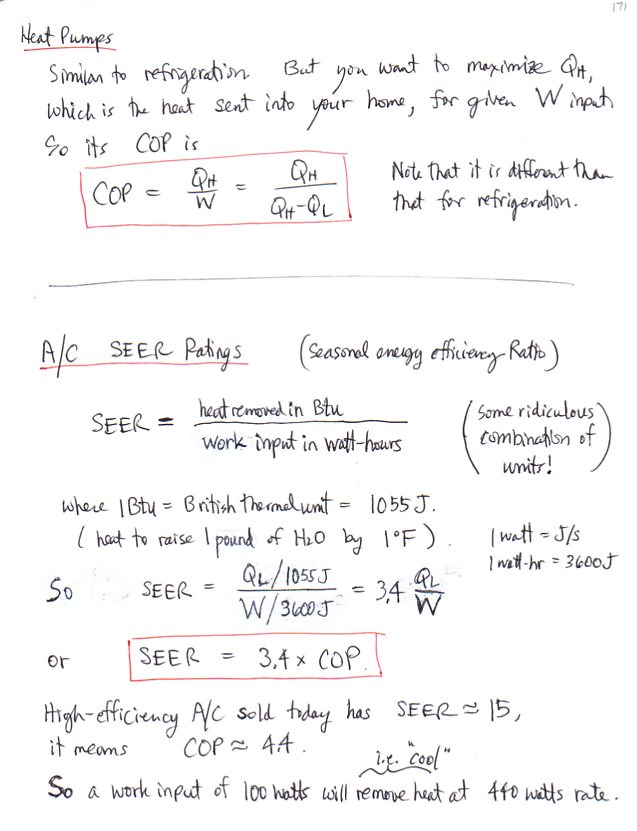 171
Heat Pumps
Similar to refrigeration. But you want to maximize QH,
which is the heat sent into your home, for given W input.
So its COP is
COP = QH/W = QH/(QH-QL)
Note that it is different than
that for refrigeration.
A/C SEER Ratings (Seasonal energy efficiency Ratio)
SEER = heat removed in Btu / work input in watt-hours
(some ridiculous
combination of
units!)
where 1 Btu = British thermal unit = 1055 J.
(heat to raise 1 pound of H2O by 1°F).
1 watt = J/s
1 watt-hr = 3600 J
So SEER = (QL/1055J)/(W/3600J) = 3.4 QL/W
or SEER = 3.4 × COP.
High-efficiency A/C sold today has SEER ≈ 15,
it means COP ≈ 4.4.
i.e. "cool"
So a work input of 100 watts will remove heat at 440 watts rate.